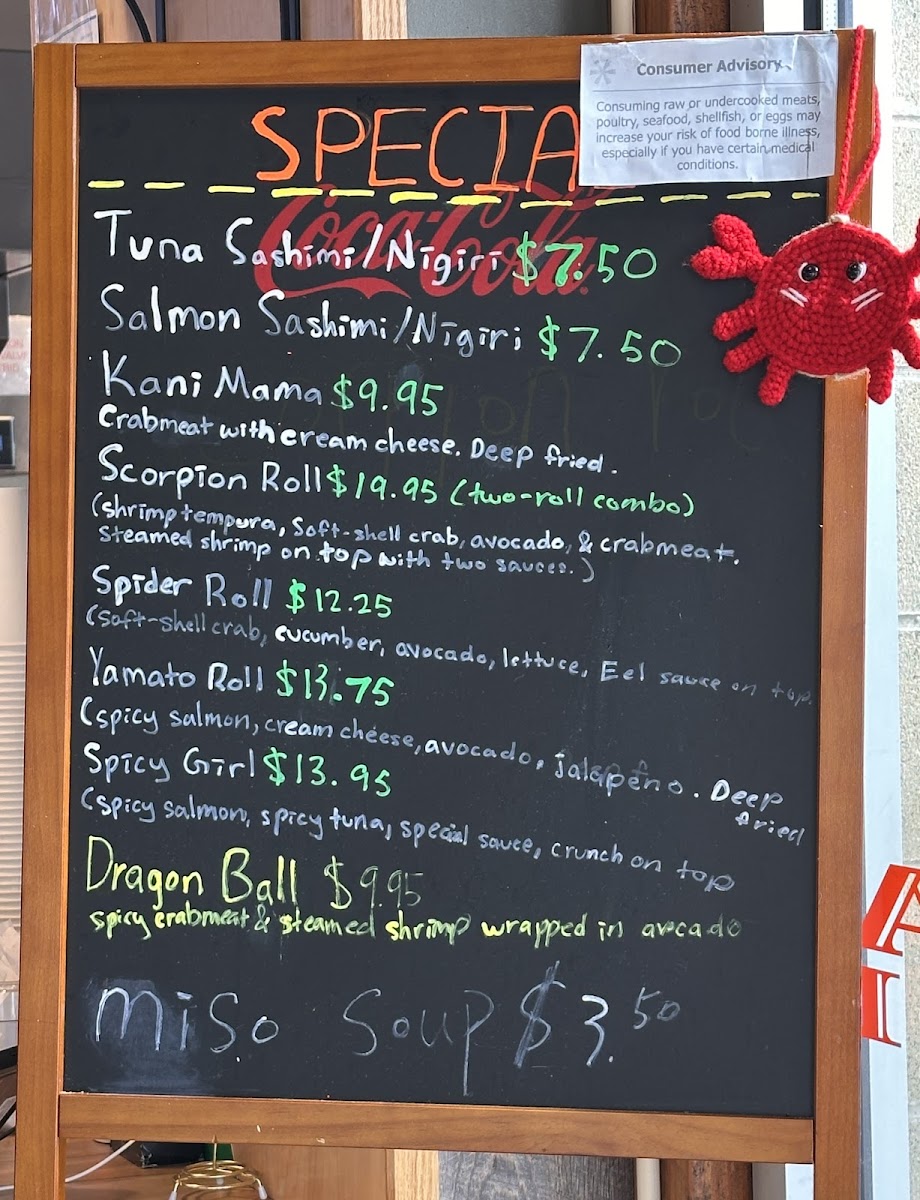 Consumer Advisory
Consuming raw or undercooked meats,
poultry, seafood, shellfish, or eggs may
increase your risk of food borne illness,
especially if you have certain medical
conditions.
SPECIA
Coca-Cola
Tuna Sashimi/Nigiri $7.50
Salmon Sashimi/Nigiri $7.50
Kani Mama $9.95
Crabmeat with cream cheese. Deep fried.
Scorpion Roll $19.95 (two-roll combo)
(shrimp tempura, Soft-shell crab, avocado, & crabmeat.
Steamed shrimp on top with two sauces.)
Spider Roll $12.25
(Soft-shell crab, cucumber, avocado, lettuce, Eel sauce on top.
Yamato Roll $13.75
(spicy salmon, cream cheese, avocado, jalapeno. Deep
fried
Spicy Girl $13.95
(spicy salmon, spicy tuna, special sauce, crunch on top
Dragon Ball $9.95
spicy crabmeat & steamed shrimp wrapped in avocado
miso Soup $3.50